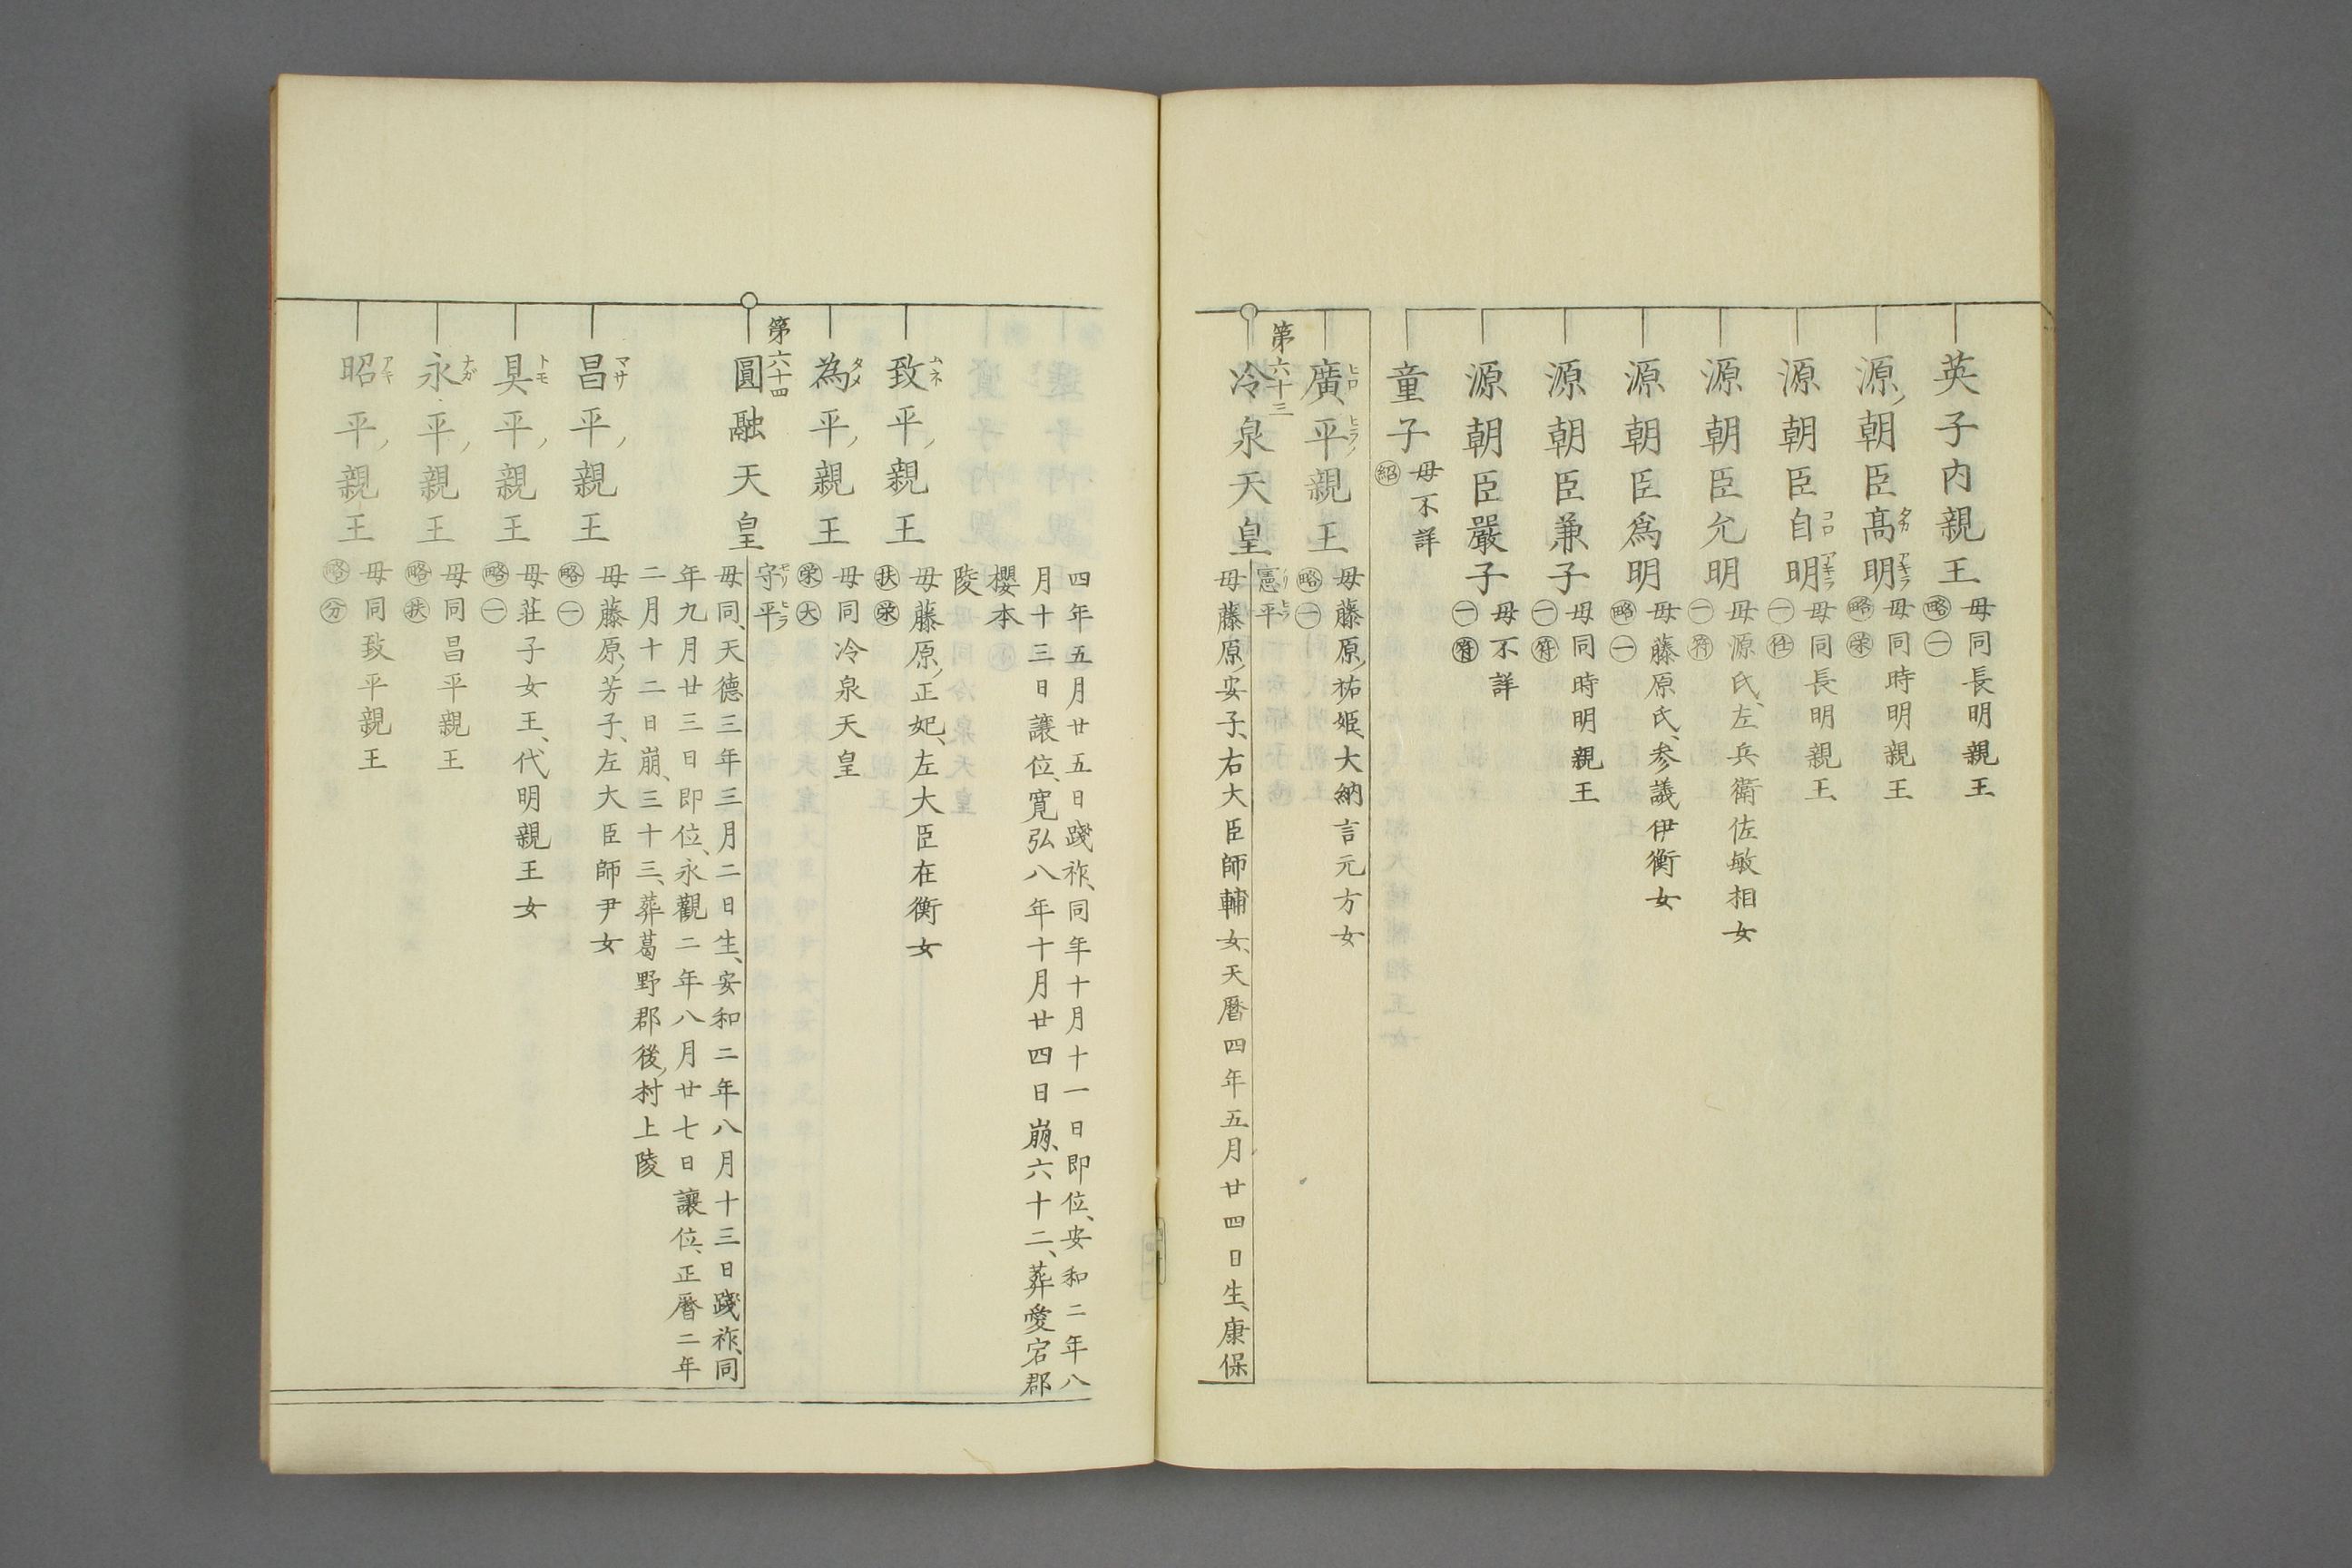 英子内親王
母同長明親王
㊀略
源ノ朝臣高明
タカ アキラ
母同時明親王
略 栄
源朝臣自明
コロ アキラ
母同長明親王
㊀ 仕
源朝臣允明
母源氏、左兵衛佐敏相女
㊀ 符
源朝臣為明
母藤原氏、参議伊衡女
略 ㊀
源朝臣兼子
母同時明親王
㊀ 符
源朝臣嚴子
母不詳
㊀ 符
童子
母不詳
紹
廣平親王
ヒロ ヒラノ
母藤原ノ祐姫、大納言元方女
略 ㊀
第六十三
冷泉天皇
憲平
ノリ ヒラ
母藤原ノ安子、右大臣師輔女、天曆四年五月廿四日生、康保
四年五月廿五日踐祚、同年十月十一日即位、安和二年八
月十三日讓位、寛弘八年十月廿四日崩、六十二、葬愛宕郡
櫻本
陵
致平ノ親王
ムネ
母藤原ノ正妃、左大臣在衡女
扶 栄
為平ノ親王
タメ
母同冷泉天皇
栄 大
第六十四
圓融天皇
守平
モリ ヒラ
母同、天德三年三月二日生、安和二年八月十三日踐祚、同
年九月廿三日即位、永觀二年八月廿七日讓位、正曆二年
二月十二日崩、三十三、葬葛野郡後ノ村上陵
昌平ノ親王
マサ
母藤原ノ芳子、左大臣師尹女
略 ㊀
具平ノ親王
トモ
母荘子女王、代明親王女
略 ㊀
永平ノ親王
ナガ
母同昌平親王
略 扶
昭平ノ親王
アキ
母同致平親王
略 分